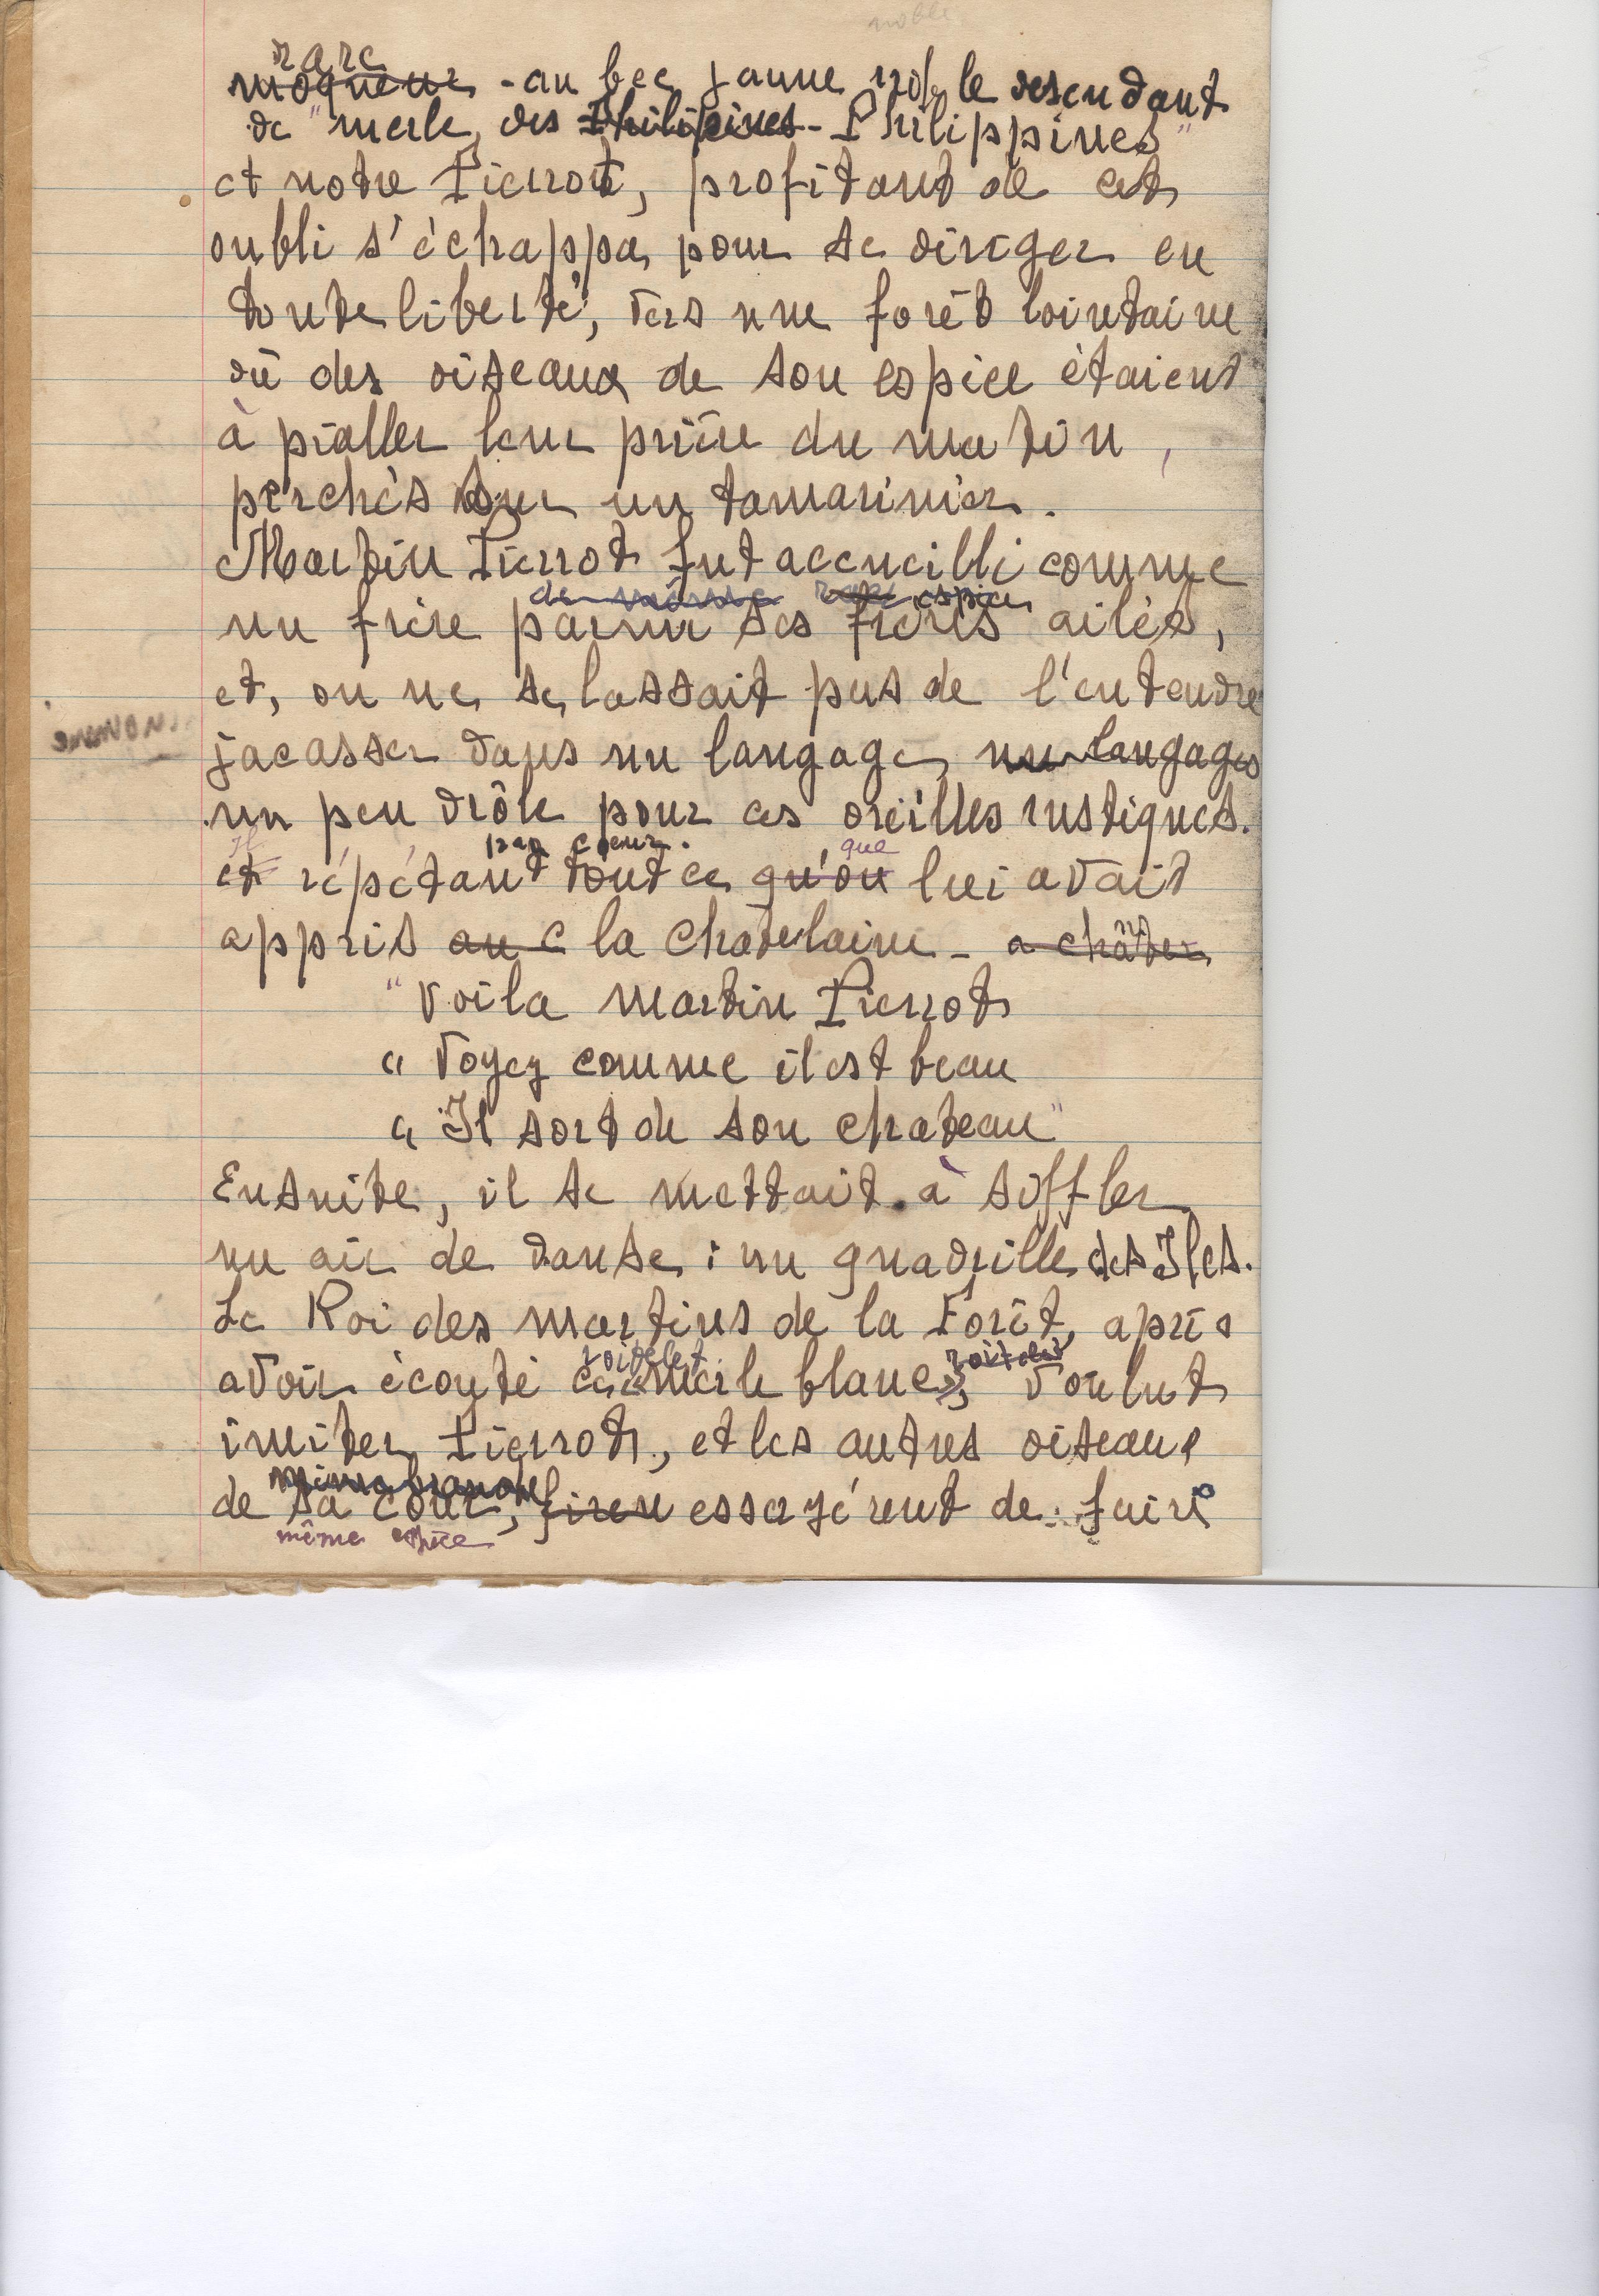 noble
rare
moqueur - au bec jaune noble desendant
de "merle des Philipines - Philippines"
et notre Pierrot, profitant de cet
oubli s'échappa pour se diriger en
toute liberté, vers une forêt lointaine
où des oiseaux de son espèce étaient
à piailler leur prière du matin,
perchés sur un tamarinier.
Martin Pierrot fut accueilli comme
de même race espèce
un frère parmi ses frères ailés,
et, on ne se lassait pas de l'entendre
jacasser dans un langage un langage
un peu drôle pour ces oreilles rustiques.
il par coeur. que
et répétant tout ce qu'on lui avait
appris au c la chatelaine - a châte
"Voila Martin Pierrot
"Voyez comme il est beau
"Il sort de son chateau"
Ensuite, il se mettait à siffler
un air de danse : un quadrille des Iles.
Le Roi des martins de la Forêt, après
roitelet roitelet
avoir écouté ce «merle blanc», voulut
imiter Pierrot, et les autres oiseaux
même branche
de sa cour, firen essayérent de faire
même espèce